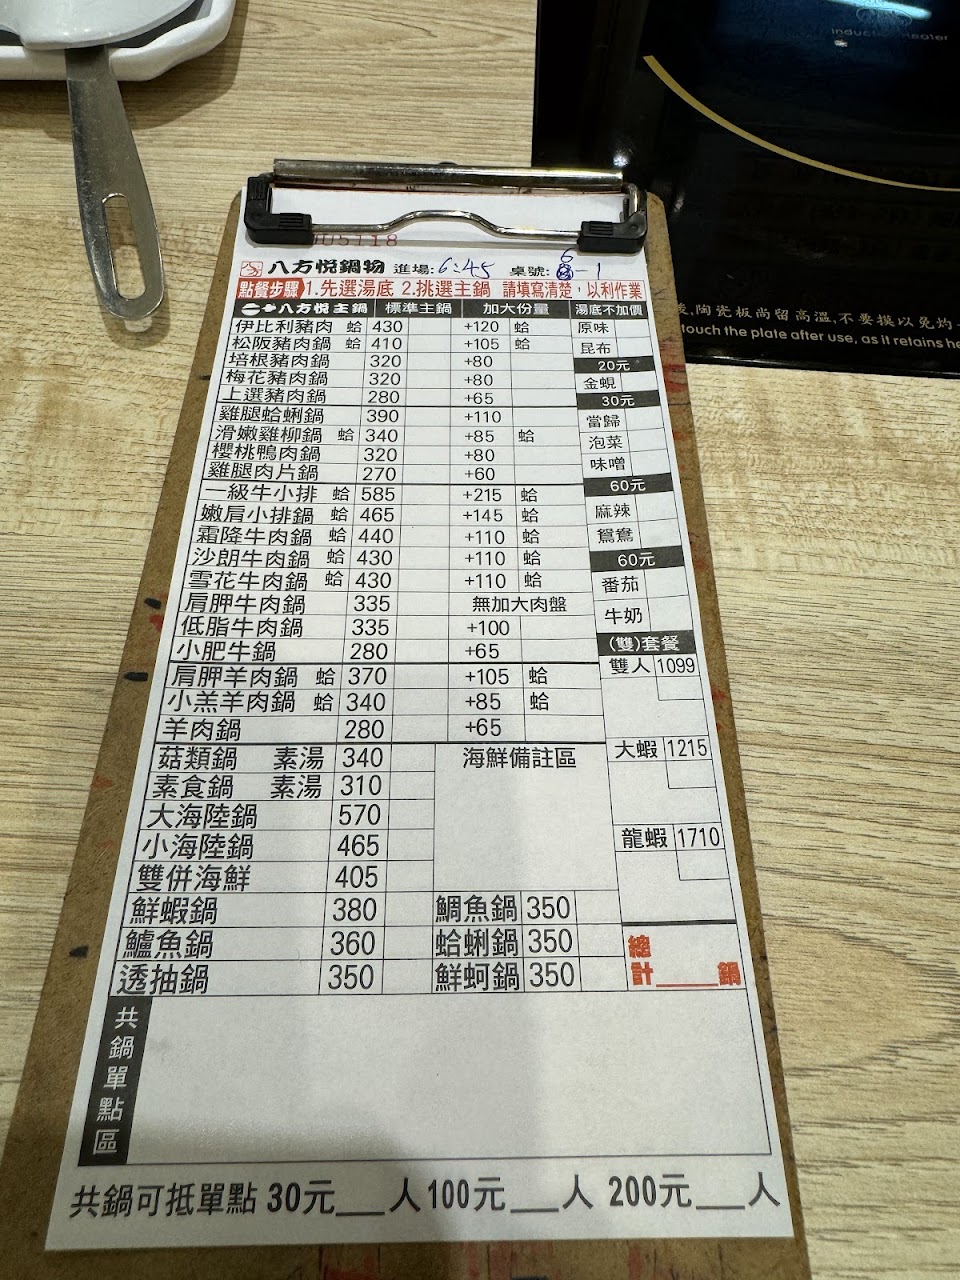 induction heater
後,陶瓷板尚留高溫,不要摸以免灼
touch the plate after use, as it retains he
005118
八方悅鍋物 進場:6:45 桌號:6-1
點餐步驟 1.先選湯底 2.挑選主鍋 請填寫清楚，以利作業
八方悅主鍋 標準主鍋 加大份量 湯底不加價
伊比利豬肉 蛤 430 +120 蛤 原味
松阪豬肉鍋 蛤 410 +105 蛤 昆布
培根豬肉鍋 320 +80 20元
梅花豬肉鍋 320 +80 金蜆
上選豬肉鍋 280 +65 30元
雞腿蛤蜊鍋 390 +110 當歸
滑嫩雞柳鍋 蛤 340 +85 蛤 泡菜
櫻桃鴨肉鍋 320 +80 味噌
雞腿肉片鍋 270 +60 60元
一級牛小排 蛤 585 +215 蛤
嫩肩小排鍋 蛤 465 +145 蛤 麻辣
霜降牛肉鍋 蛤 440 +110 蛤 鴛鴦
沙朗牛肉鍋 蛤 430 +110 蛤 60元
雪花牛肉鍋 蛤 430 +110 蛤 番茄
肩胛牛肉鍋 335 無加大肉盤 牛奶
低脂牛肉鍋 335 +100 (雙)套餐
小肥牛鍋 280 +65 雙人 1099
肩胛羊肉鍋 蛤 370 +105 蛤
小羔羊肉鍋 蛤 340 +85 蛤
羊肉鍋 280 +65 大蝦 1215
菇類鍋 素湯 340 海鮮備註區
素食鍋 素湯 310
大海陸鍋 570 龍蝦 1710
小海陸鍋 465
雙併海鮮 405
鮮蝦鍋 380 鯛魚鍋 350
鱸魚鍋 360 蛤蜊鍋 350 總
透抽鍋 350 鮮蚵鍋 350 計___鍋
共鍋單點區
共鍋可抵單點 30元___人 100元___人 200元___人